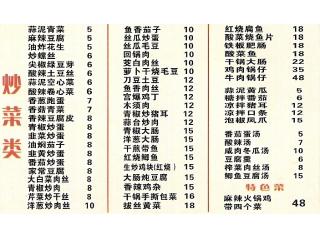 炒菜类
蒜泥青菜 5
麻辣豆腐 5
油炸花生 5
炒螺丝 6
尖椒绿豆芽 6
酸辣土豆丝 6
蒜泥空心菜 6
酸辣卷心菜 6
香葱炮蛋 7
香菇青菜 7
香辣豆腐皮 8
青椒炒蛋 8
韭菜炒蛋 8
油焖茄子 8
韭黄炒蛋 8
番茄炒蛋 8
家常豆腐 8
大白菜肉丝 8
青椒炒肉 8
芹菜炒干丝 8
洋葱炒肉丝 10
鱼香茄子 10
丝瓜炒蛋 10
丝瓜毛豆 10
回锅肉 10
茭白肉丝 10
萝卜干烧毛豆 10
刀豆土豆 12
鱼香肉丝 12
宫爆鸡丁 12
木须肉 12
青椒炒猪耳 12
蒜台炒肉 12
青椒大肠 15
洋葱大肠 15
干煎带鱼 15
红烧鲫鱼 15
生炒鸡块(红烧) 15
大肠炖豆腐 15
香辣鸡杂 15
干锅手撕包菜 16
拔丝黄菜 18
红烧扁鱼 18
酸菜烧鱼片 18
铁板肥肠 18
酸菜鱼 18
干锅大肠 22
鸡肉锅仔 35
牛肉锅仔 48
蒜泥黄瓜 5
糖拌番茄 6
凉拌猪耳 12
凉拌口条 12
泡椒凤爪 15
番茄蛋汤 5
酸辣汤 7
咸肉冬瓜汤 10
豆腐羹 6
榨菜肉丝汤 8
鲫鱼豆腐汤 15
特色菜
麻辣火锅鸡
带四个菜 48